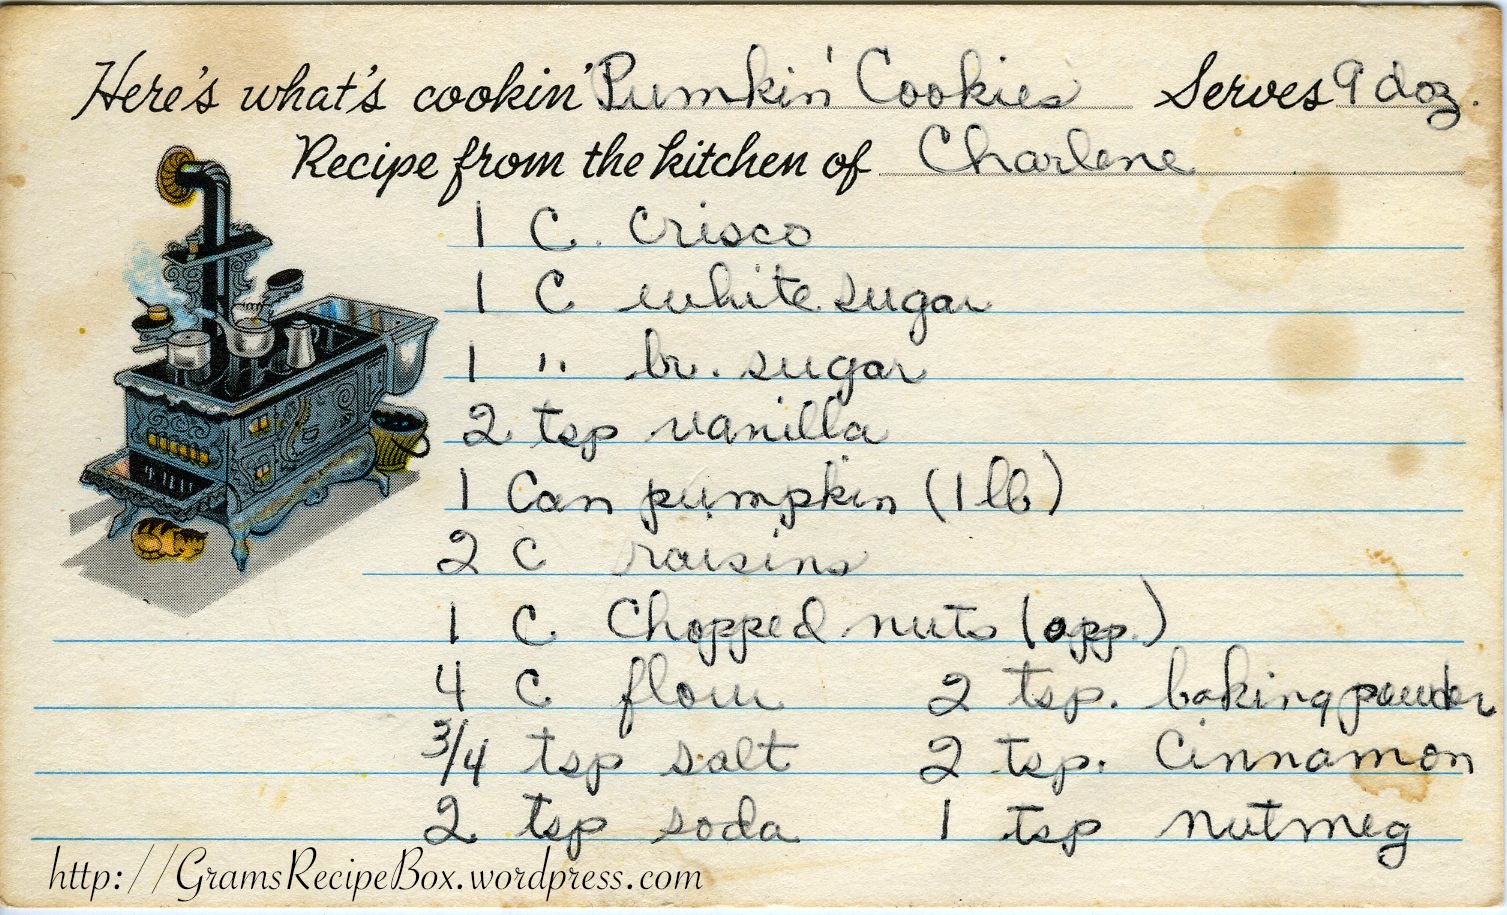 Here's what's cookin' Pumkin' Cookies Serves 9 doz.
Recipe from the kitchen of Charlene
1 C. Crisco
1 C white sugar
1 " br. sugar
2 tsp vanilla
1 Can pumpkin (1 lb)
2 C raisins
1 C Chopped nuts (opp.)
4 C flour 2 tsp. baking powder
3/4 tsp salt 2 tsp. Cinnamon
2 tsp soda 1 tsp nutmeg
http://GramsRecipeBox.wordpress.com